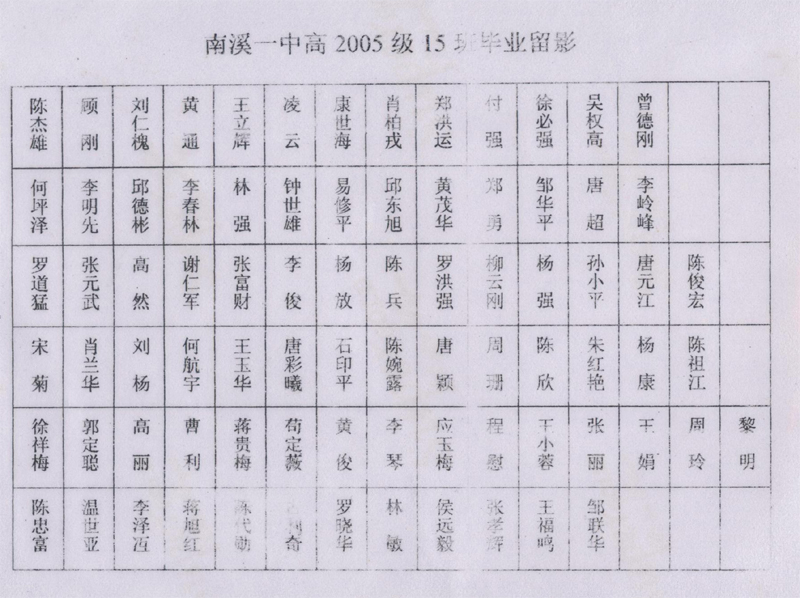 南溪一中高 2005 级 15 班毕业留影
陈杰雄 顾刚 刘仁槐 黄通 王立辉 凌云 康世海 肖柏戎 郑洪运 付强 徐必强 吴权高 曾德刚
何坪泽 李明先 邱德彬 李春林 林强 钟世雄 易修平 邱东旭 黄茂华 郑勇 邹华平 唐超 李岭峰
罗道猛 张元武 高然 谢仁军 张富财 李俊 杨放 陈兵 罗洪强 柳云刚 杨强 孙小平 唐元江 陈俊宏
宋菊 肖兰华 刘杨 何航宇 王玉华 唐彩曦 石印平 陈婉露 唐颖 周珊 陈欣 朱红艳 杨康 陈祖江
徐样梅 郭定聪 高丽 曹利 蒋贵梅 苟定薇 黄俊 李琴 应玉梅 程慰 王小蓉 张丽 王娟 周玲 黎明
陈忠富 温世亚 李泽冱 蒋旭红 陈代勋 奇 罗骁华 林敏 侯远毅 张孝辉 王福鸣 邹联华